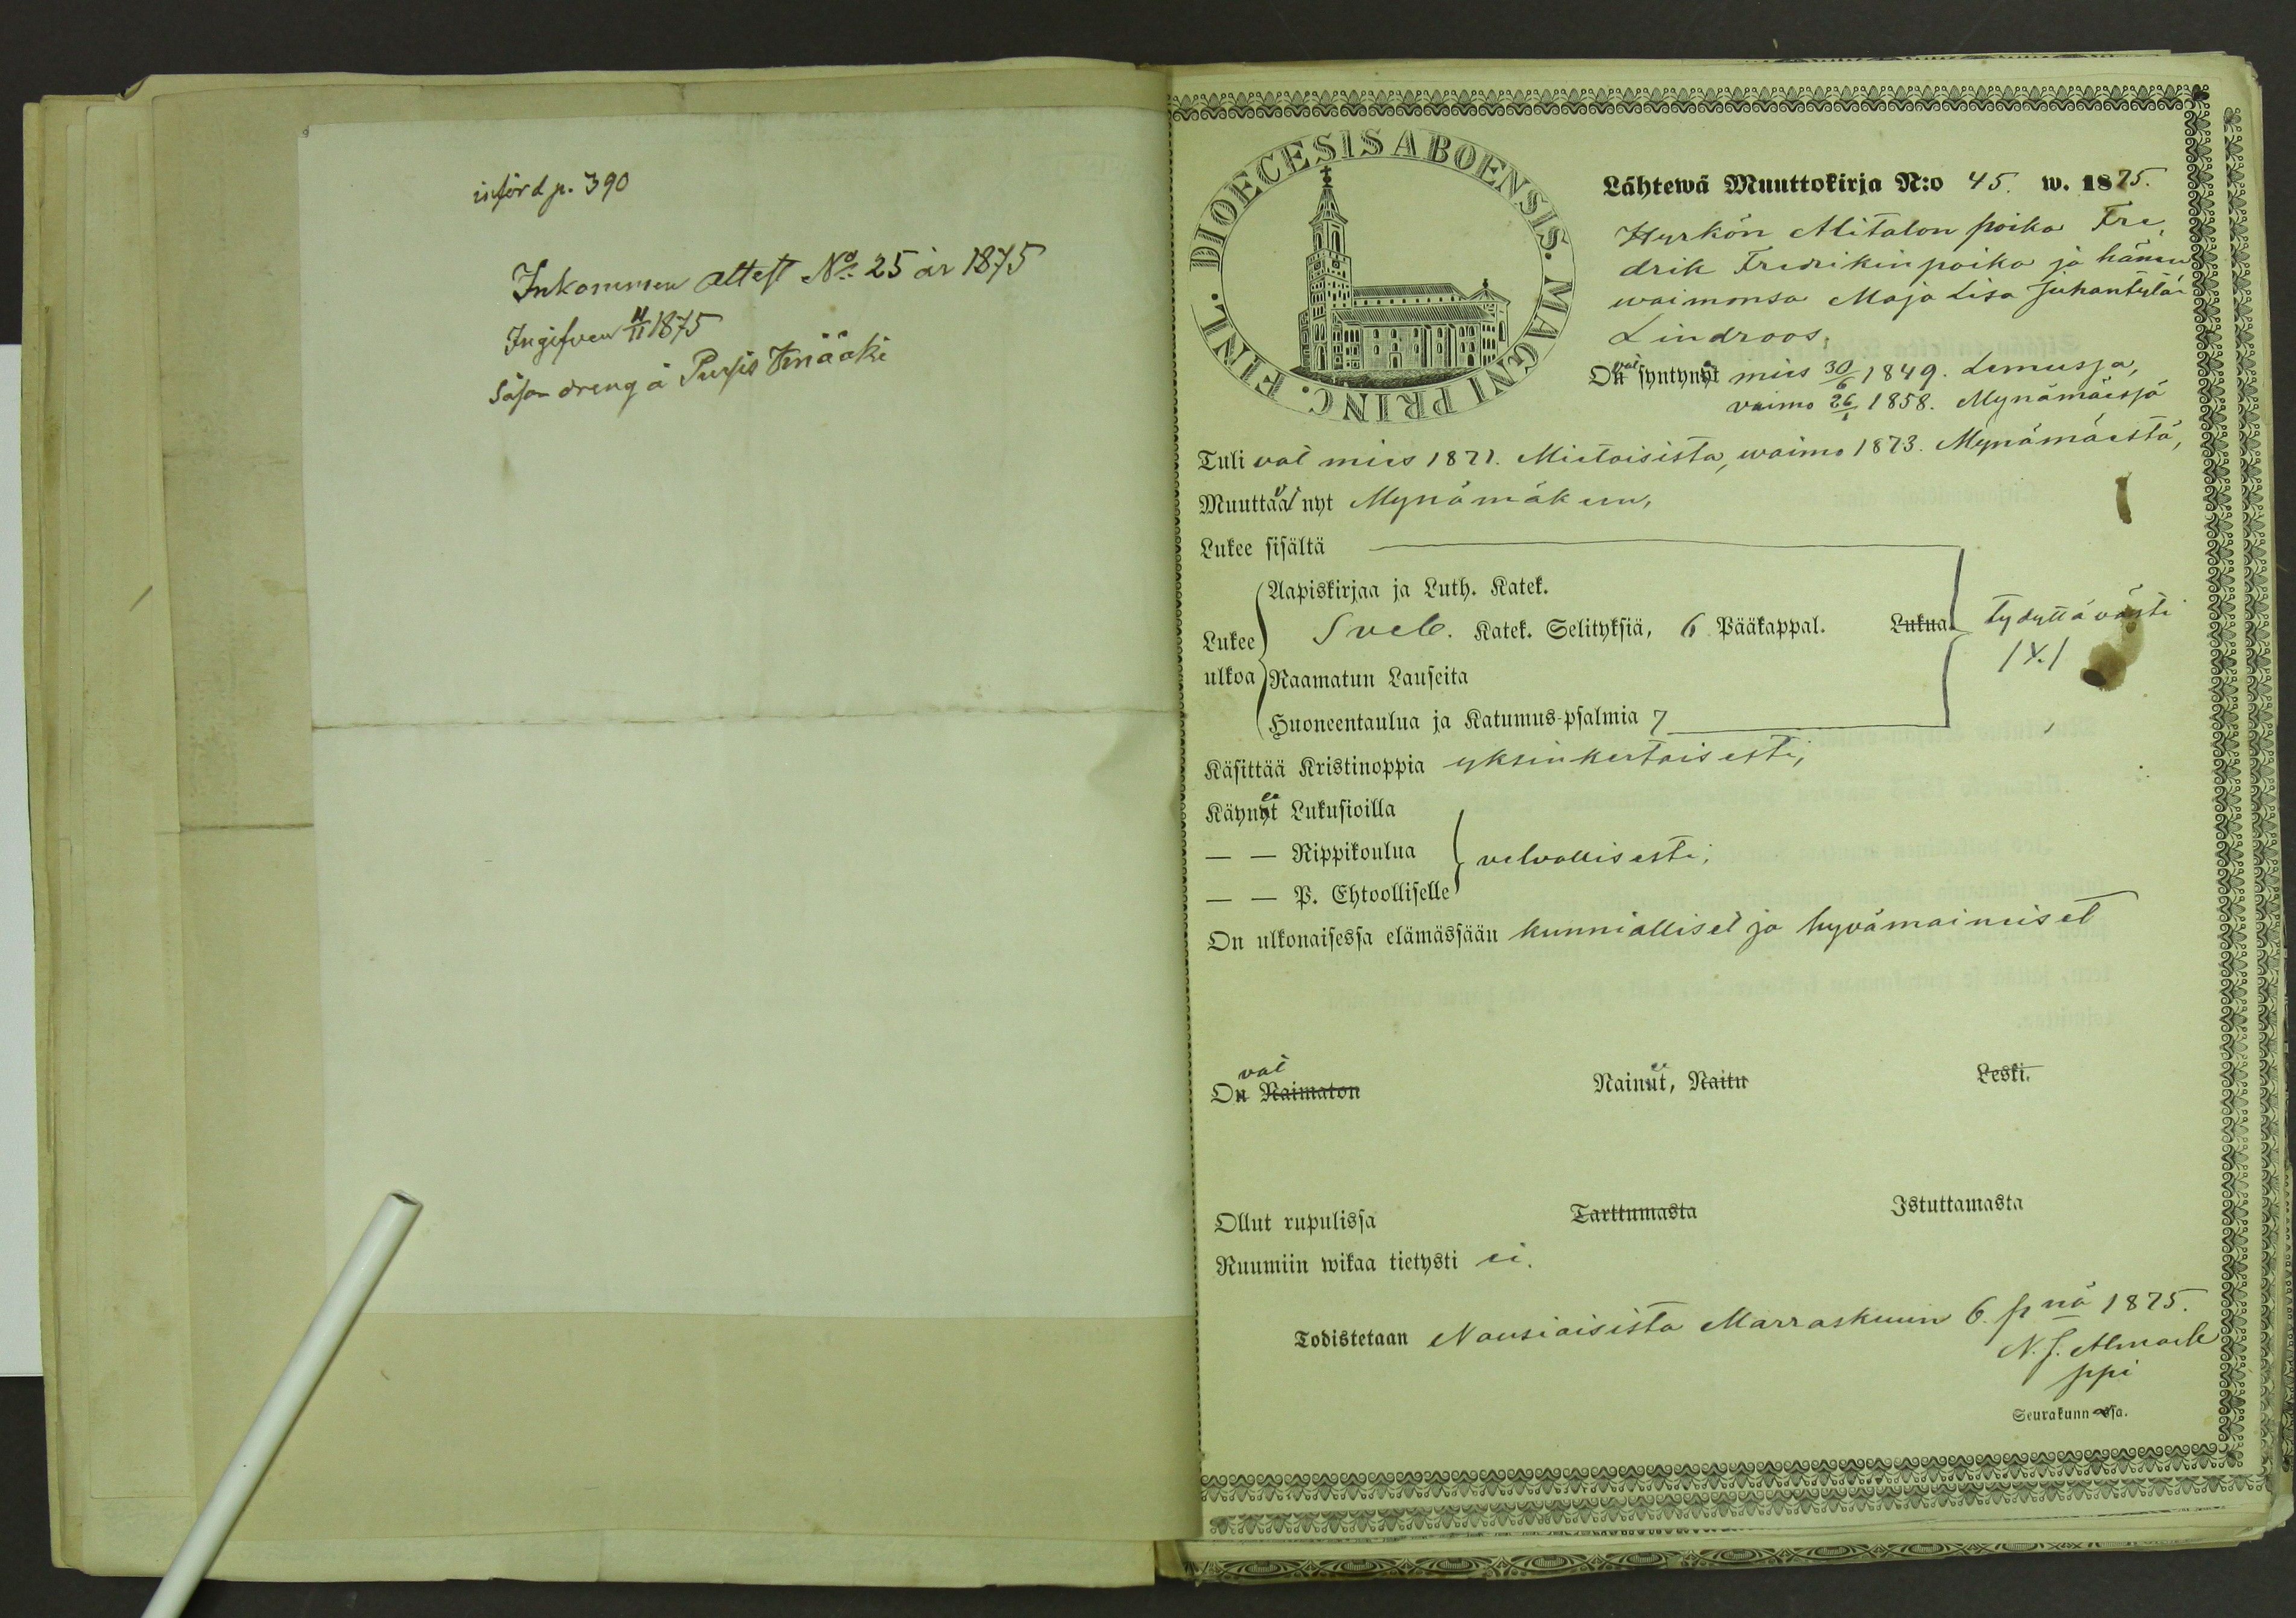 införd p. 390
Inkommen attest No 25 år 1875
Ingifven 11/11 1875
såsom dreng å Pursis
DIOECESIS ABOENSIS. MAGNI PRINC. FINL.
Lähtewä Muuttokirja N:o 45. w. 1875.
Hyrkön Alitalon poika Fre-
drik Fredrikinpoika ja hänen
waimonsa Maja Lisa Juhantytär
Lindroos.
Ovat syntynet mies 30/6 1849. Lemussa,
vaimo 26/1 1858. Mynämäessä
Tulivat mies 1871. Mietoisista, waimo 1873. Mynämäestä,
Muuttaa nyt Mynämäkeen,
Lukee sisältä
Aapiskirjaa ja Luth. Katek.
Lukee Sveb. Katek. Selityksiä, 6 Pääkappal. Lukua tydyttävästi
ulkoa Raamatun Lauseita
Huoneentaulua ja Katumus-psalmia 7
Käsittää Kristinoppia yksinkertaisesti,
Käyneet Lukusioilla
— — Rippikoulua velvollisesti,
— — P. Ehtoolliselle
On ulkonaisessa elämässään kunnialliset ja hyvämaineiset
Ovat Naimaton Naineet, Naitu Leski.
Ollut rupulissa Tarttumasta Istuttamasta
Ruumiin wikaa tietysti ei.
Todistetaan Nousiaisista Marraskuun 6. pnä 1875.
N. J.
ppi
Seurakunnassa.